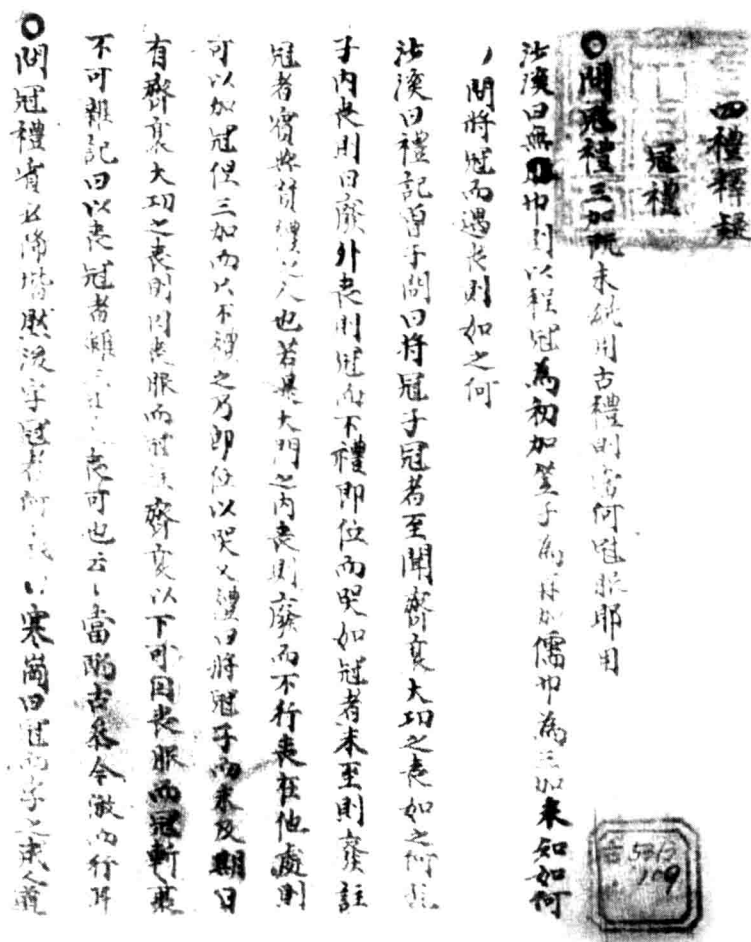 四禮釋疑
冠禮
○問冠禮三加旣未純用古禮則當何冠服耶用
沙溪曰無巾則以程冠為初加笠子為再加儒巾為三加未知如何
問將冠而遇喪則如之何
沙溪曰禮記曾子問曰將冠子冠者至聞齊衰大功之喪如之何孔
子內喪則曰廢外喪則冠而不禮即位而哭如冠者未至則廢註
冠者賓與贊禮之人也若是大門之內喪則廢而不行喪在他處則
可以加冠但三加而止不禮之乃即位以哭又禮曰將冠子而未及期日
有齊衰大功之喪則因喪服而冠 齊衰以下可因喪服而冠斬衰
不可雜記曰以喪冠者雖三年之喪可也云〻當隔古參今激而行耳
○問冠禮賓主降階然後字冠者何義 寒崗曰冠而字之成人道
古 5213
109